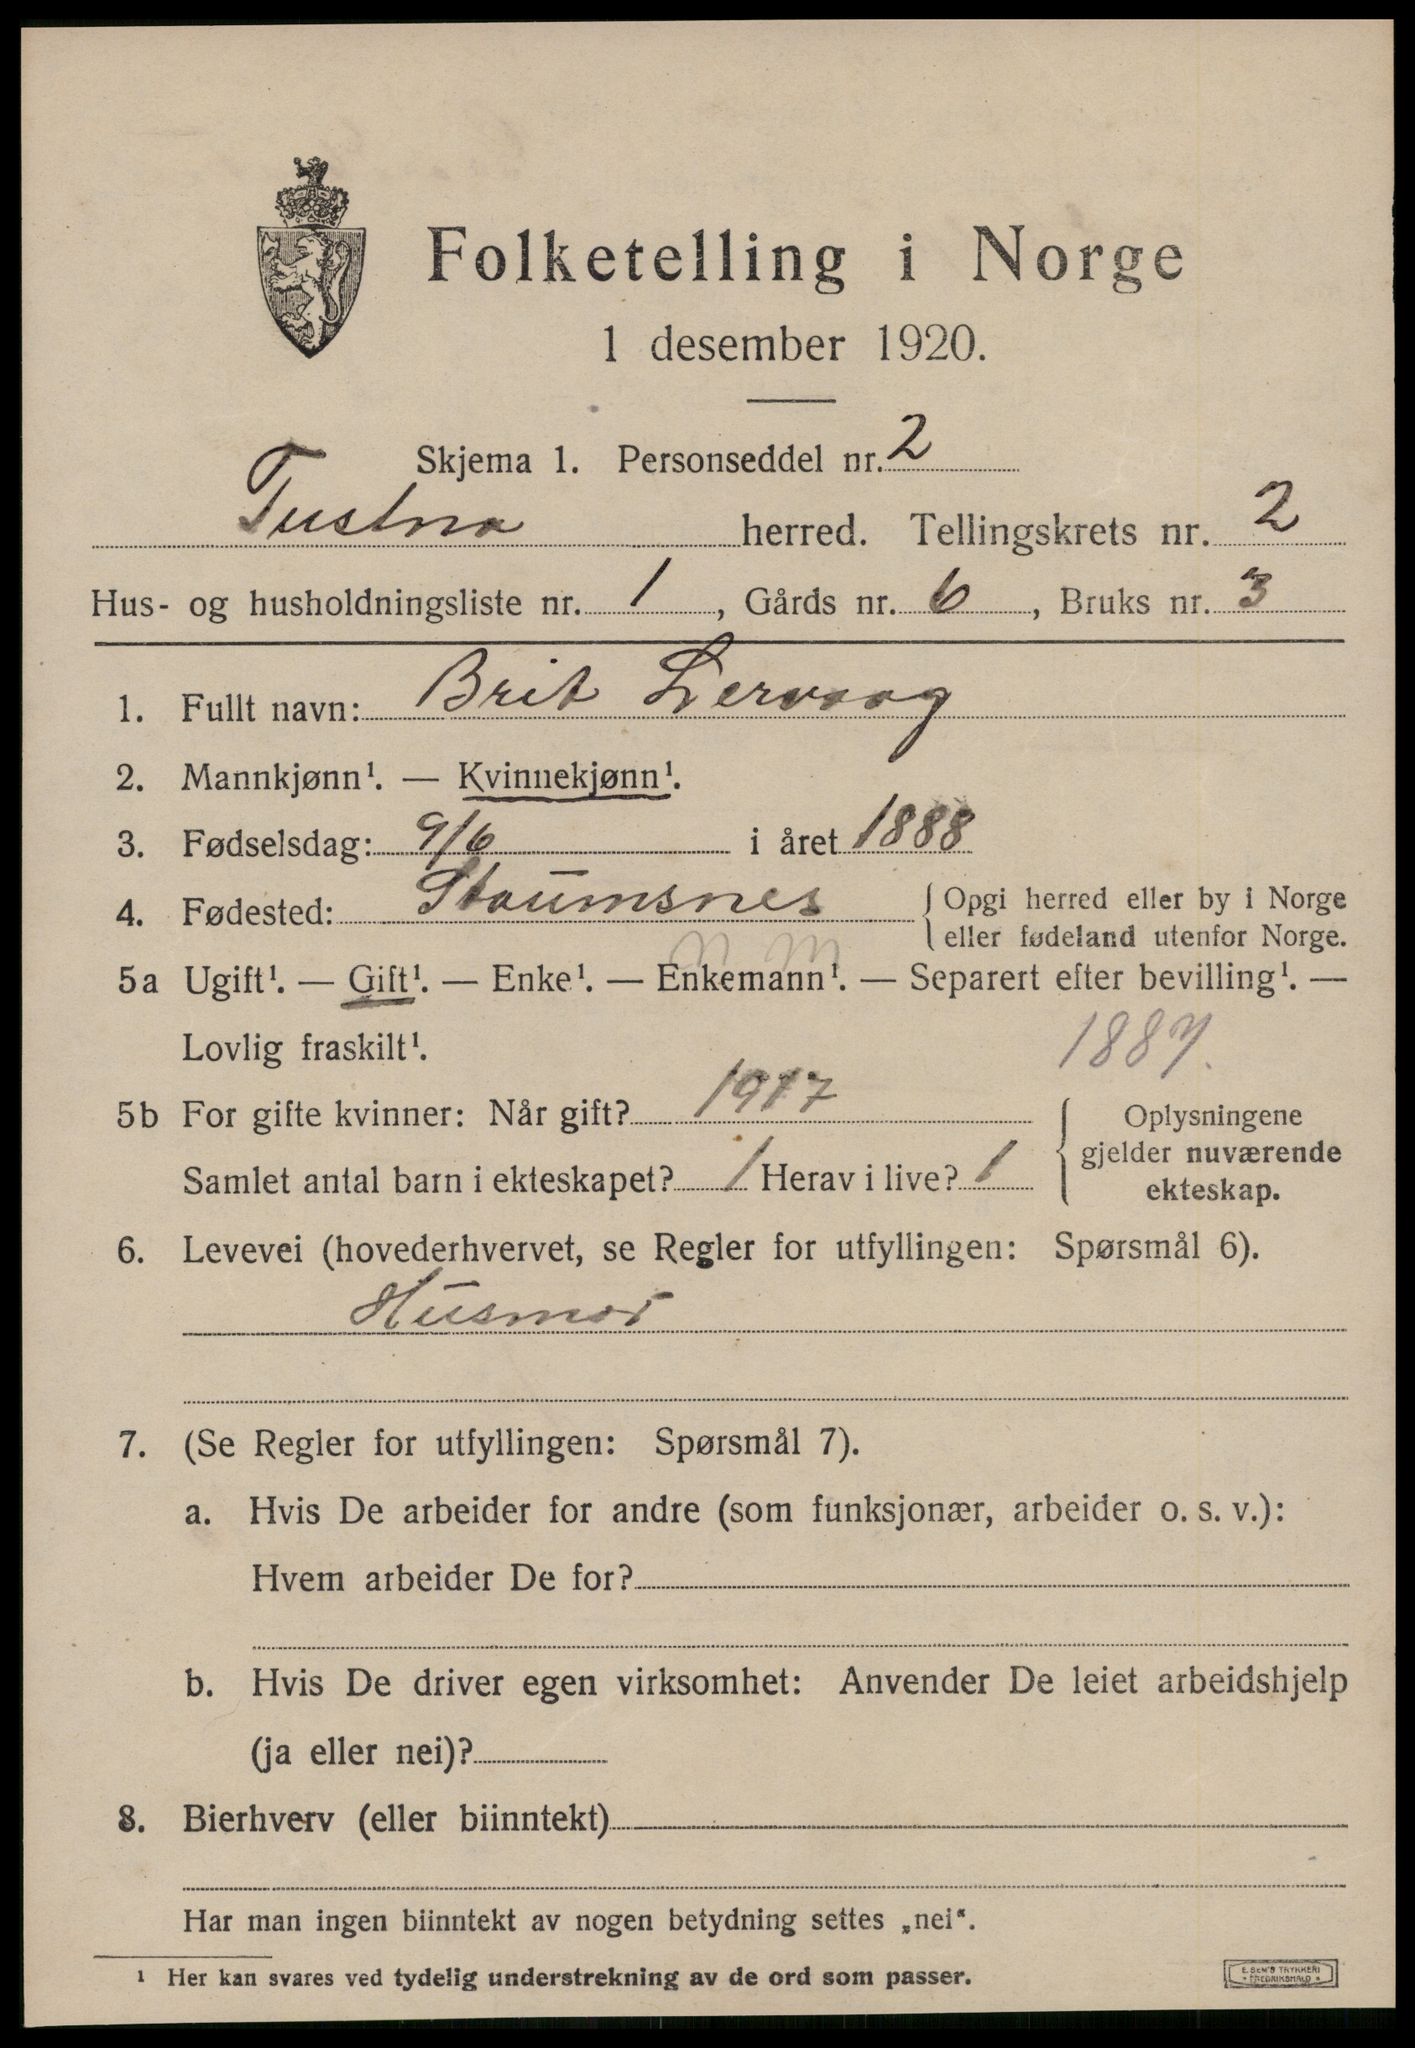 Folketelling i Norge
1 desember 1920.
Skjema 1. Personseddel nr. 2
Tustna herred. Tellingskrets nr. 2
Hus- og husholdningsliste nr. 1, Gårds nr. 6, Bruks nr. 3
1. Fullt navn: Brit Lervaag
2. Mannkjønn¹. — Kvinnekjønn¹.
3. Fødselsdag: 9/6 i året 1888
4. Fødested: Staumsnes { Opgi herred eller by i Norge
eller fødeland utenfor Norge.
N M
5a Ugift¹. — Gift¹. — Enke¹. — Enkemann¹. — Separert efter bevilling¹. —
Lovlig fraskilt¹. 1887.
5b For gifte kvinner: Når gift? 1917 { Oplysningene
gjelder nuværende
Samlet antal barn i ekteskapet? 1 Herav i live? 1 ekteskap.
6. Levevei (hovederhvervet, se Regler for utfyllingen: Spørsmål 6).
Husmor
7. (Se Regler for utfyllingen: Spørsmål 7).
a. Hvis De arbeider for andre (som funksjonær, arbeider o. s. v.):
Hvem arbeider De for?
b. Hvis De driver egen virksomhet: Anvender De leiet arbeidshjelp
(ja eller nei)?
8. Bierhverv (eller biinntekt)
Har man ingen biinntekt av nogen betydning settes „nei“.
¹ Her kan svares ved tydelig understrekning av de ord som passer.
E. SEM'S TRYKKERI
* FREDRIKSHALD *